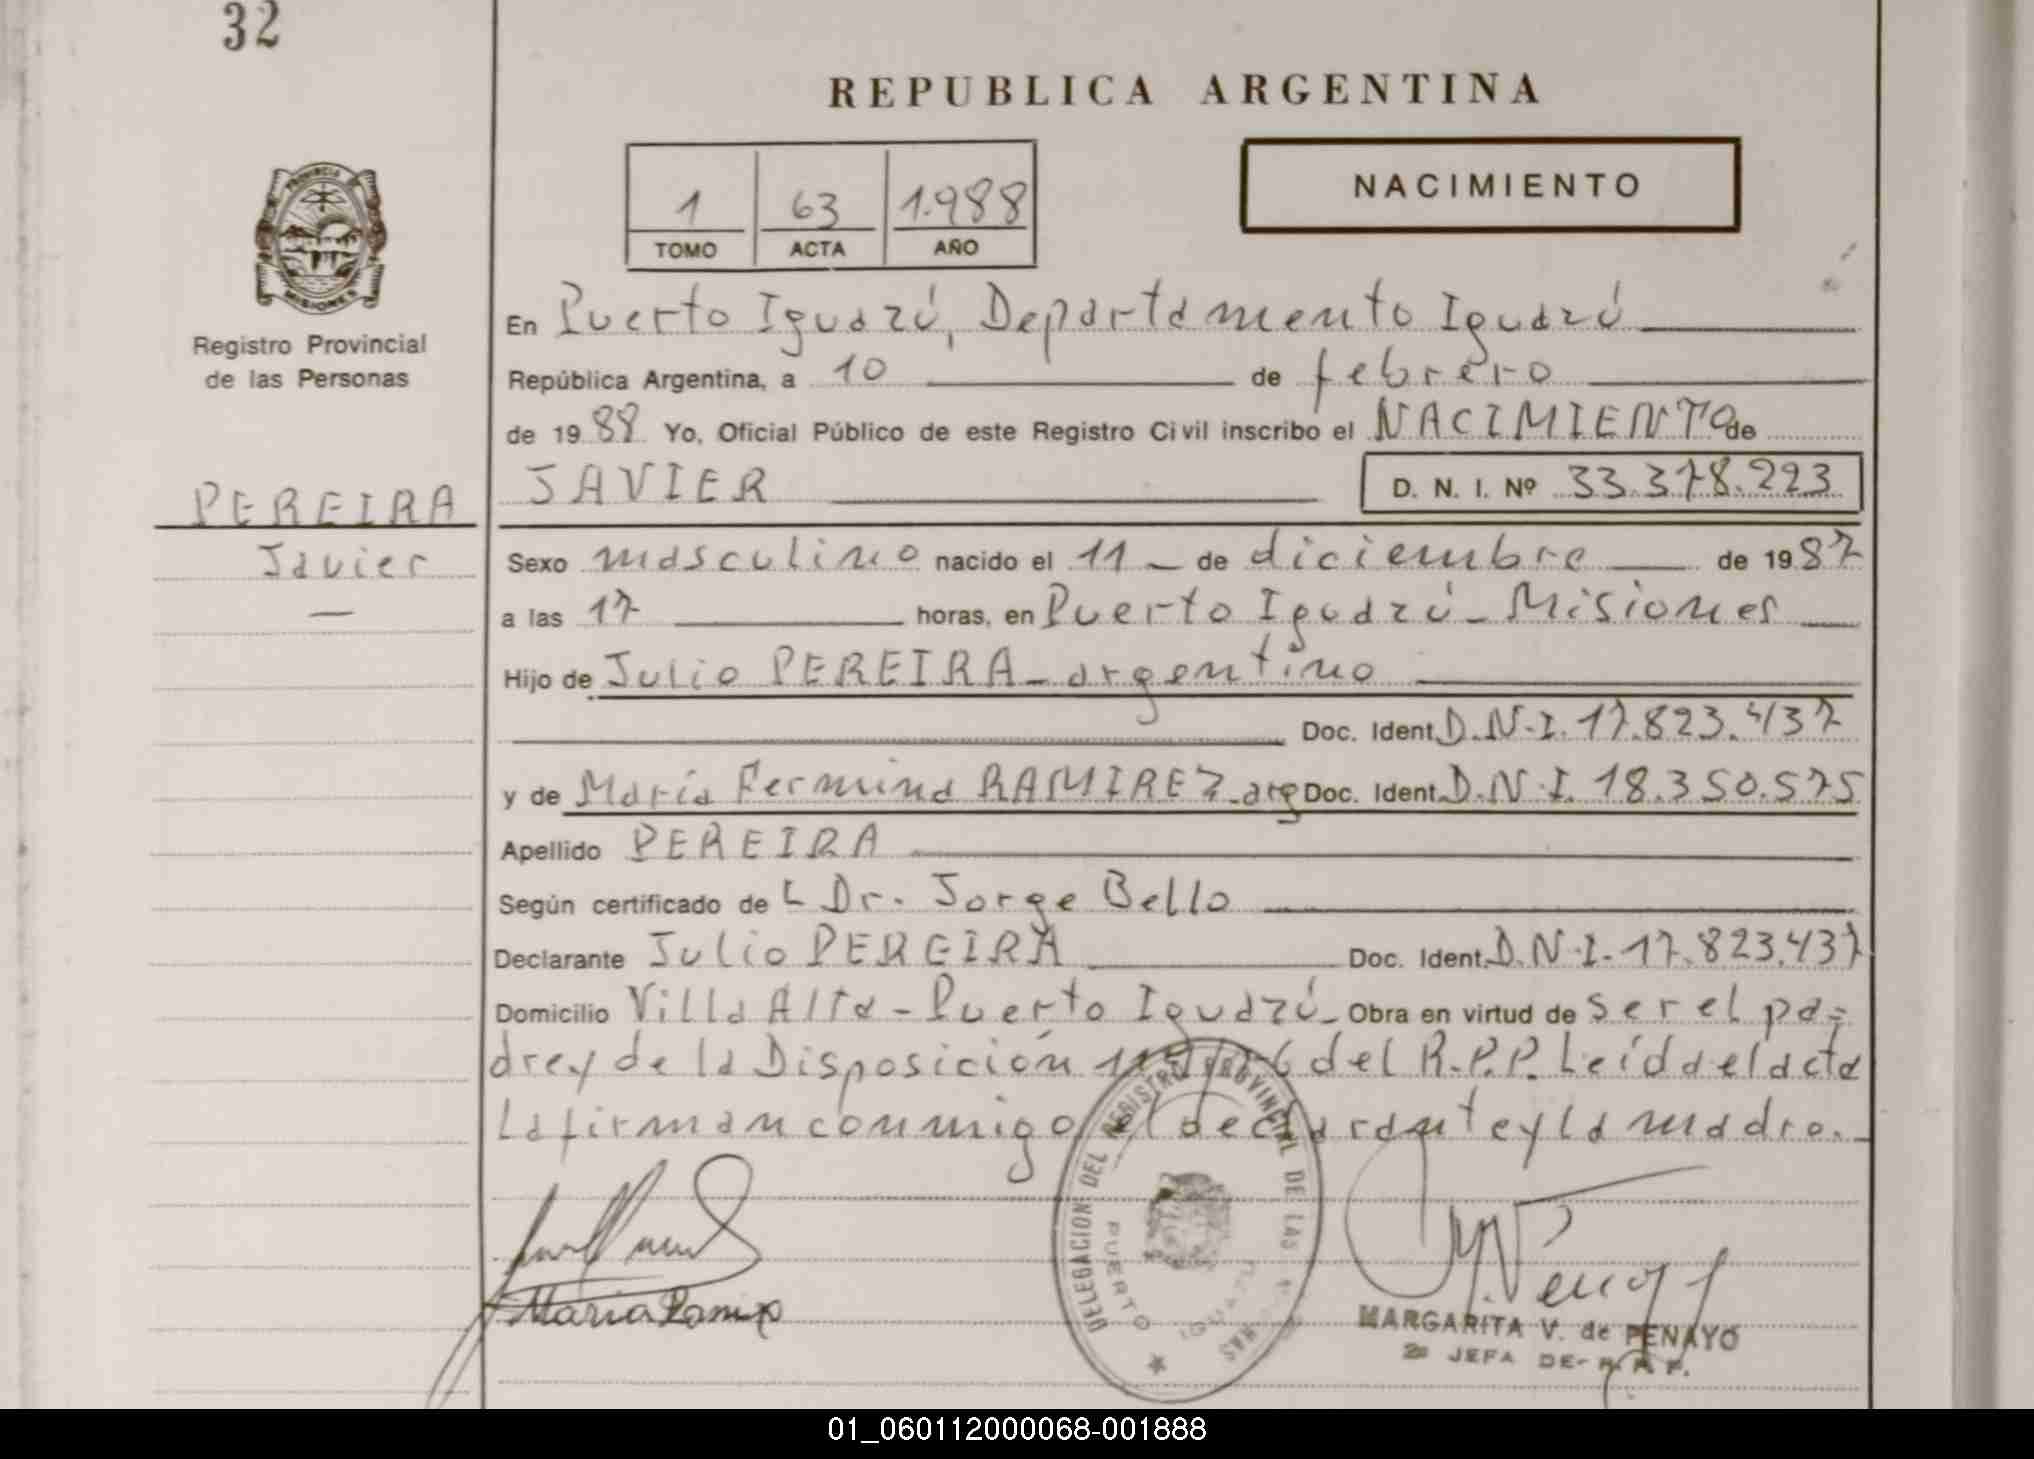 32
REPUBLICA ARGENTINA
1 63 1.988
TOMO ACTA AÑO
NACIMIENTO
PROVINCIA
MISIONES
Registro Provincial
de las Personas
PEREIRA
Javier
En Puerto Iguazú, Departamento Iguazú
República Argentina, a 10 de febrero
de 1988 Yo, Oficial Público de este Registro Civil inscribo el NACIMIENTO de
JAVIER D. N. I. Nº 33.378.223
Sexo masculino nacido el 11 de diciembre de 1987
a las 17 horas, en Puerto Iguazú - Misiones
Hijo de Julio PEREIRA - argentino
Doc. Ident. D.N.I. 17.823.437
y de María Fermina RAMIREZ - arg Doc. Ident. D.N.I. 18.350.575
Apellido PEREIRA
Según certificado de L Dr. Jorge Bello
Declarante Julio PEREIRA Doc. Ident. D.N.I. 17.823.437
Domicilio Villa Alta - Puerto Iguazú - Obra en virtud de ser el pa=
dre y de la Disposición del R.P.P. Leída el acta
La firman conmigo el declarante y la madre.
DELEGACION DEL REGISTRO PROVINCIAL DE LAS
PUERTO IGUAZU
Maria Ramirez
MARGARITA V. de PENAYO
2ª JEFA DE
01_060112000068-001888